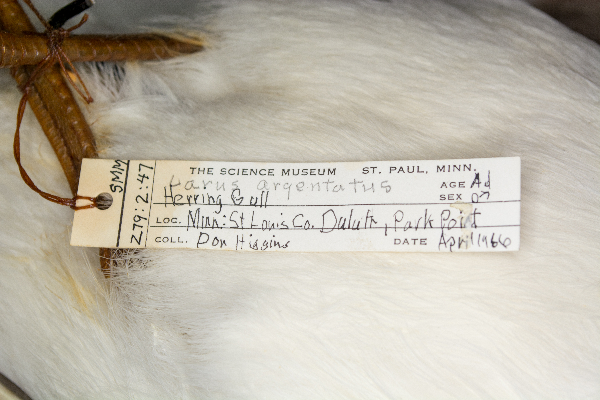 SMM
Z79:2:47
THE SCIENCE MUSEUM ST. PAUL, MINN.
Larus argentatus AGE Ad
Herring Gull SEX ♂
LOC. Minn: St Louis Co. Duluth, Park Point
COLL. Don Higgins DATE April 1966